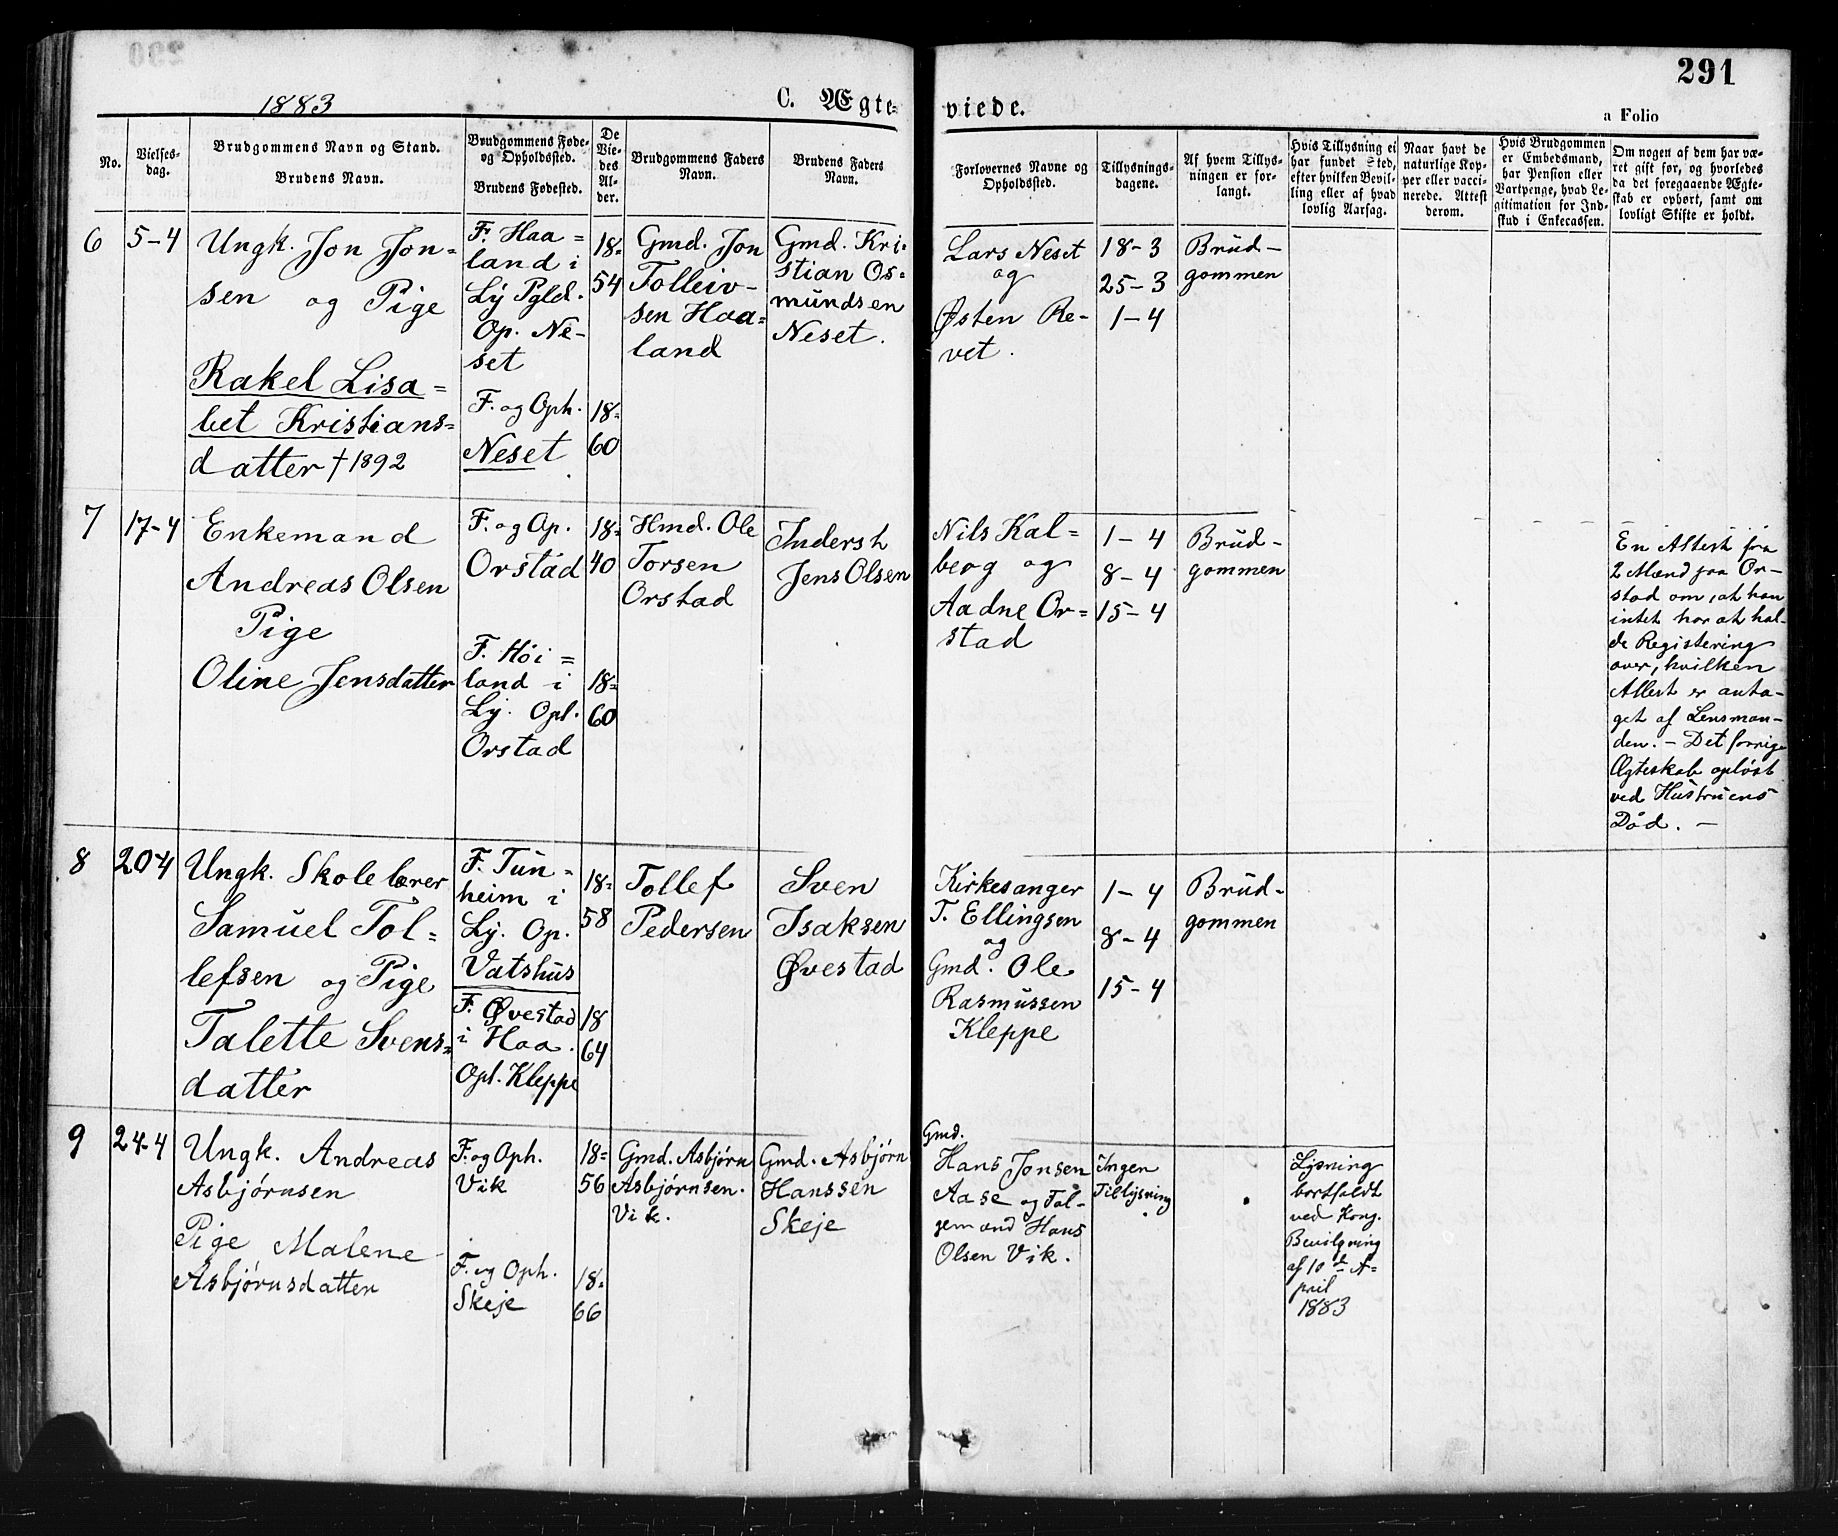 291
1883
C. Ægte-
viede.
a Folio
No.
Vielses-
dag.
Brudgommens Navn og Stand.
Brudens Navn.
Brudgommens Føde-
og Opholdssted.
Brudens Fødested.
De
Vie-
des
Al-
der.
Brudgommens Faders
Navn.
Brudens Faders
Navn.
Forlovernes Navne og
Opholdssted.
Tillysnings-
dagene.
Af hvem Tillys-
ningen er for-
langt.
Hvis Tillysning ei
har fundet Sted,
efter hvilken Bevil-
ling eller af hvad
lovlig Aarsag.
Naar havt de
naturlige Kop-
per eller vacci-
nerede. Attest
derom.
Hvis Brudgommen
er Embedsmand,
har Pension eller
Vartpenge, hvad Le-
gitimation for Ind-
skud i Enkecassen.
Om nogen af dem har væ-
ret gift før, og hvorledes
da det foregaaende Ægte-
skab er ophørt, samt om
lovligt Skifte er holdt.
6
5-4
Ungk. Jon Jon=
sen og Pige
Rakel Lisa=
bet Kristians=
datter † 1892
F. Haa=
land i
Ly Pgld.
Op. Ne-
set
F. og Oph.
Neset
18=
54
18=
60
Gmd. Jon
Tolleiv-
sen Haa=
land
Gmd. Kri-
stian Os=
mundsen
Neset.
Lars Neset
og
Østen Re-
vet.
18-3
25-3
1-4
Brud-
gommen
7
17-4
Enkemand
Andreas Olsen
Pige
Oline Jensdatter
F. og Op.
Orstad
F. Höi=
land i
Ly. Opl.
Orstad
18=
40
18=
60
Hmd. Ole
Torsen
Orstad
Inderst
Jens Olsen
Nils Kal=
berg og
Aadne Or=
stad
1-4
8-4
15-4
Brud-
gommen
En Attest fra
2 Mænd paa Or-
stad om, at han
intet har at hol-
de Registering
over, hvilken
Attest er anta-
get af Lensman-
den. - Det forrige
Ægteskab opløst
ved Hustruens
Død. -
8
20-4
Ungk. Skolelærer
Samuel Tol=
lefsen og Pige
Talette Svens=
datter
F. Tun-
heim i
Ly. Op.
Vatshus
F. Øvestad
i Haa.
Opl. Kleppe
18=
58
18
64
Tollef
Pedersen
Sven
Isaksen
Øvestad
Kirkesanger
T. Ellingsen
og
Gmd. Ole
Rasmussen
Kleppe
1-4
8-4
15-4
Brud-
gommen
9
24-4
Ungk. Andreas
Asbjørnsen
Pige Malene
Asbjørnsdatter
F. og Oph.
Vik
F. og Oph.
Skeje
18=
56
18=
66
Gmd. Asbjørn
Asbjørnsen.
Vik.
Gmd. Asbjørn
Hanssen
Skeje
Gmd.
Hans Jonsen
Aase og Fol-
gemand Hans
Olsen Vik.
Ingen
Tillysning
Lysning
bortfaldt
ved Kong.
Bevilgning
af 10de A=
pril
1883